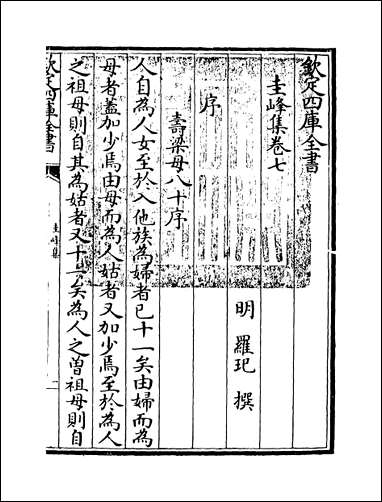 欽定四庫全書
圭峰集卷七
明 羅玘 撰
序
壽梁母八十序
人自為人女至於入他族為婦者已十一矣由婦而為
母者蓋加少焉由母而為人姑者又加少焉至於為人
之祖母則自其為姑者又十一矣為人之曾祖母則自
欽定四庫全書
圭峰集
一